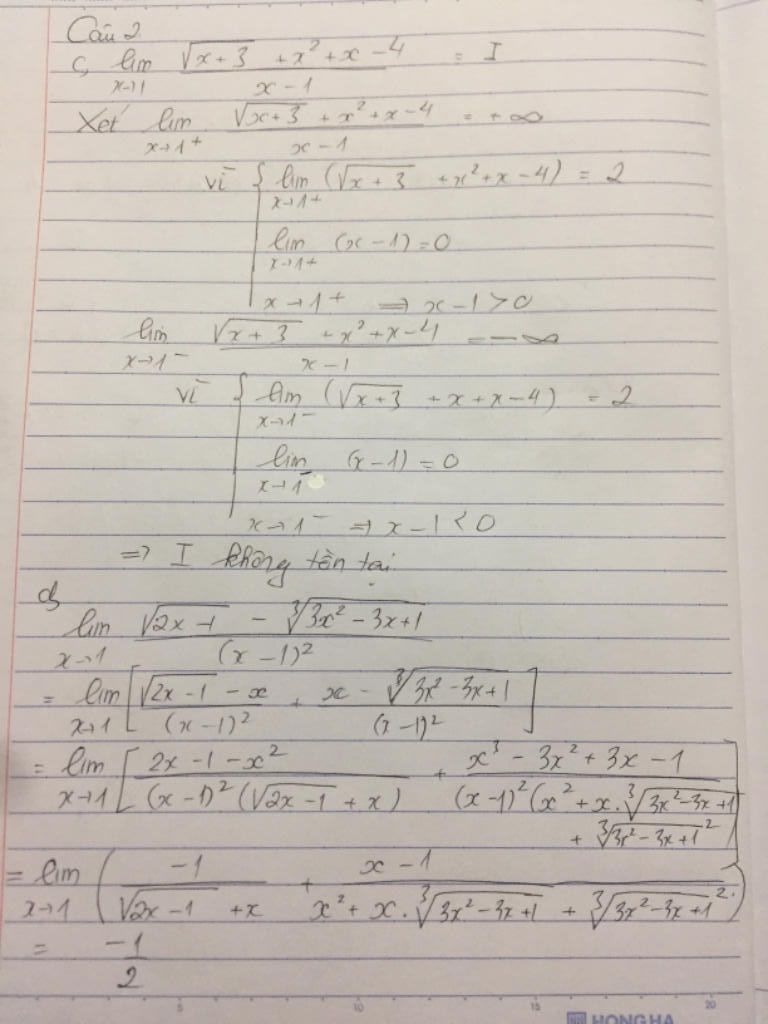 Câu 2
c, lim x→1 (√(x+3) + x² + x - 4)/(x - 1) = I
Xét lim x→1⁺ (√(x+3) + x² + x - 4)/(x - 1) = +∞
vì { lim x→1⁺ (√(x+3) + x² + x - 4) = 2
lim x→1⁺ (x - 1) = 0
x→1⁺ ⇒ x - 1 > 0
lim x→1⁻ (√(x+3) + x² + x - 4)/(x - 1) = -∞
vì { lim x→1⁻ (√(x+3) + x + x - 4) = 2
lim x→1⁻ (x - 1) = 0
x→1⁻ ⇒ x - 1 < 0
⇒ I không tồn tại.
d,
lim x→1 (√(2x-1) - ∛(3x² - 3x + 1))/(x - 1)²
= lim x→1 [(√(2x-1) - x)/(x - 1)² + (x - ∛(3x² - 3x + 1))/(x - 1)²]
= lim x→1 [(2x - 1 - x²)/((x - 1)²(√(2x-1) + x)) + (x³ - 3x² + 3x - 1)/((x - 1)²(x² + x.∛(3x² - 3x + 1) + ∛(3x² - 3x + 1)²)]
= lim x→1 (-1/(√(2x-1) + x) + (x - 1)/(x² + x.∛(3x² - 3x + 1) + ∛(3x² - 3x + 1)²))
= -1/2
5 10 15 20
HONG HA